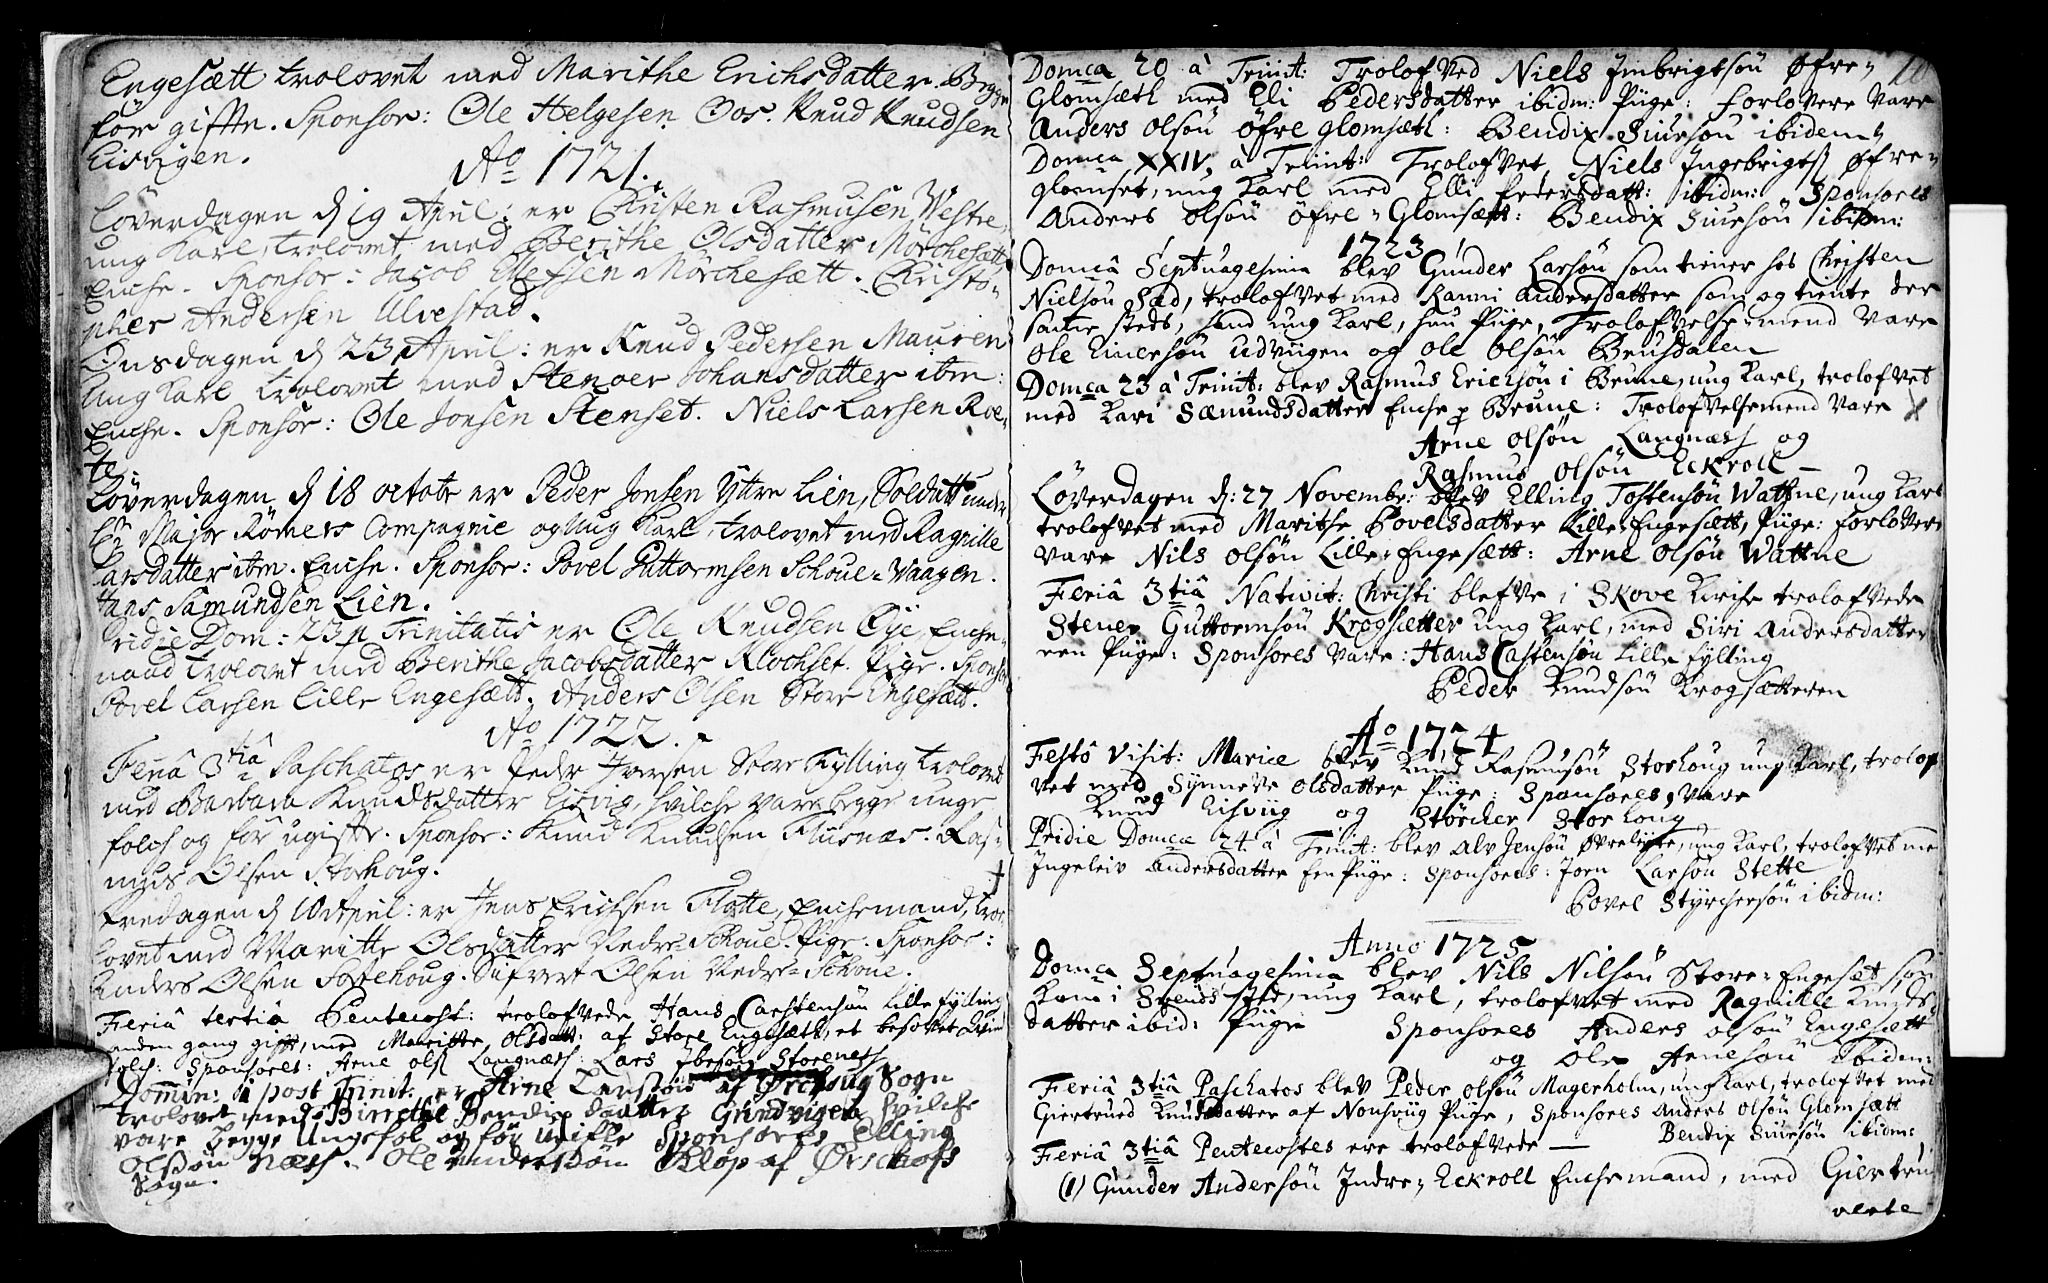 Engesætt trolovet med Marithe Erichsdatter. Begge
før giftte. Sponsor: Ole Helgesen Oos. Knud Knudsen
Eisvigen.
Ao 1721.
Løverdagen d 19 April: er Christen Rasmusen Westre,
ung Karl, trolovet med Berithe Olsdatter Mørchesætt,
Enche. Sponsor: Jacob Ellefsen Mørchesætt. Christo-
pher Andersen Ulvestad.
Onsdagen d 23 April: er Knud Pedersen Mauren
Ung Karl trolovet med Stenoer Johansdatter ibm:
Enche. Sponsor: Ole Jonsen Stenset. Niels Larsen Roe-
te.
Løverdagen d 18 octobr er Peder Jonsen Yttre Lien, Soldatt under
Hr Major Römers Compagnie og Ung Karl, trolovet med Ragnille
Larsdatter ibm. Enche. Sponsor: Povel Guttormsen Schoue=Vaagen.
Hans Samundsen Lien.
Pridie Dom: 23 p Trinitatis er Ole Knudsen Øye, Enche-
mand trolovet med Berithe Jacobsdatter Klochset. Pige. Sponsor
Povel Larsen Lille Engesætt. Anders Olsen Store Engesætt.
Ao 1722.
Feriâ 3tiâ Paschatos er Peder Iversen Store Fylling trolovet
med Barbara Knudsdatter Eisvig, hvilche vare begge unge
folch og før ugifte. Sponsor: Knud Knudsen Flusnæs. Ras-
mus Olsen Storhoug.
Fredagen d 10 April: er Jens Erichsen Flotte, Enchemand, tro-
lovet med Maritte Olsdatter Nedre=Schoue. Pige. Sponsor:
Anders Olsen Tostehoug. Sifvert Olsen Nedre=Schoue.
Feriâ tertiâ Pentecost: trolofvede Hans Carstensøn Lille fylling
anden gang gift, med Maritte Olsdatt: af Store Engesætt, et besofvet Qvind
folch: Sponsores: Arne Ols: Langnæss: Lars Ibesøn Storenæss
Domin: 1 post Trinit. er Arne Larssøn af Ørchoug Sogn
trolovet med Birrethe Bendix daatter Grindvigen hvilche
vare begge Ungefol og før Uifte Sponsores Elling
Olssøn Næss. Ole Anderssøn Kløp af Ørschofs
Sogn.
Domca 20 à Trinit: Trolofved Niels Imbrigtsøn Øfre-
Glomsæth med Eli Pedersdatter ibidm: Piige: Forlovere vare
Anders Olsøn øfre glomsæth: Bendix Siursøn ibidem
Domca XXIV, à Trinit: Trolofvet Niels Ingebrigts: Øfre-
glomset, ung karl med Elli Pedersdatt: ibidm: Sponsores
Anders Olsøn øfre-Glomsætt: Bendix Siursøn ibidm:
1723
Domcâ Septuagesima blev Gunder Larsøn som tiener hos Christen
Nielsøn Sæd, trolofvet med Ranni Andersdatter som og tiente der
samme steds, hand ung karl, hun Piige, Trolofvelse=mend vare
Ole Einersøn Udviigen og Ole Olsøn Brusdalen
Domca 23 à Trinit: blev Rasmus Ericksøn i Brune, ung Karl, trolofvet
med Kari Sæmundsdatter Enche p Brune: Trolofvelsemend vare
Arne Olsøn Langnæss og
Rasmus Olsøn Eckroll
Løverdagen d: 27 Novembr: blev Elling Tostensøn Wattne, ung Karl
trolofvet med Marithe Povelsdatter Lille=Engesætt, Piige: Forlovere
vare Nils Olsøn Lille=Engesætt: Arne Olsøn Wattne
Feriâ 3tiâ Nativit: Christi blefve i Skove Kirche trolofvede
Stener Guttormsøn Krogsætter ung Karl, med Siri Andersdatter
een Piige: Sponsores vare: Hans Castensøn Lille fylling
Peder Knudsøn Krogsætteren
Ao 1724
Festô Visit: Mariæ blev Knud Rasmusøn Storhoug ung Karl, trolof
vet med Synneve Olsdatter Piige: Sponsores, vare
Knud Eisviig og Størcher Storhoug
Pridie Domca 24 à Trinit: blev Alv Jensøn Øvrelyte, ung Karl, trolofvet me
Ingeleiv Andersdatter een Piige: Sponsores: Joen Larsøn Stette
Povel Styrchersøn ibidm:
Anno 1725
Domca Septuagesima blev Nils Nilsøn Store=Engeset, som
kom i Svends sted, ung Karl, trolofvet med Ragnille Knuds
datter ibid: Piige Sponsores Anders Olsøn Engesætt
og Ole Arnesøn ibidm:
Feriâ 3tiâ Paschatos blev Peder Olsøn Magerholm, ung Karl, trolofvet med
Giertrued Knudsdatter af Nonsviig Piige, Sponsores Anders Olsøn Glomsætt
Bendix Siursøn ibidm:
Feriâ 3tiâ Pentecostes ere trolofvede
(1) Gunder Andersøn Indre=Eckroll Enchemand, med Giertru
verte